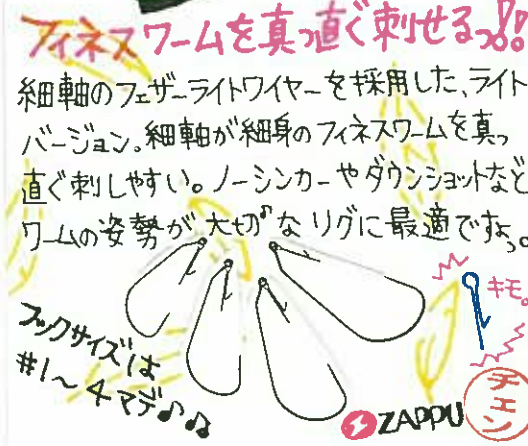 フィネスワームを真っ直ぐ刺せるっ!!
細軸のフェザーライトワイヤーを採用した、ライト
バージョン。細軸が細身のフィネスワームを真っ
直ぐ刺しやすい。ノーシンカーやダウンショットなど
ワームの姿勢が大切♪なリグに最適ですょ。
キモ。
フックサイズは
#1〜4マデ♪♫
ZAPPU
チェン